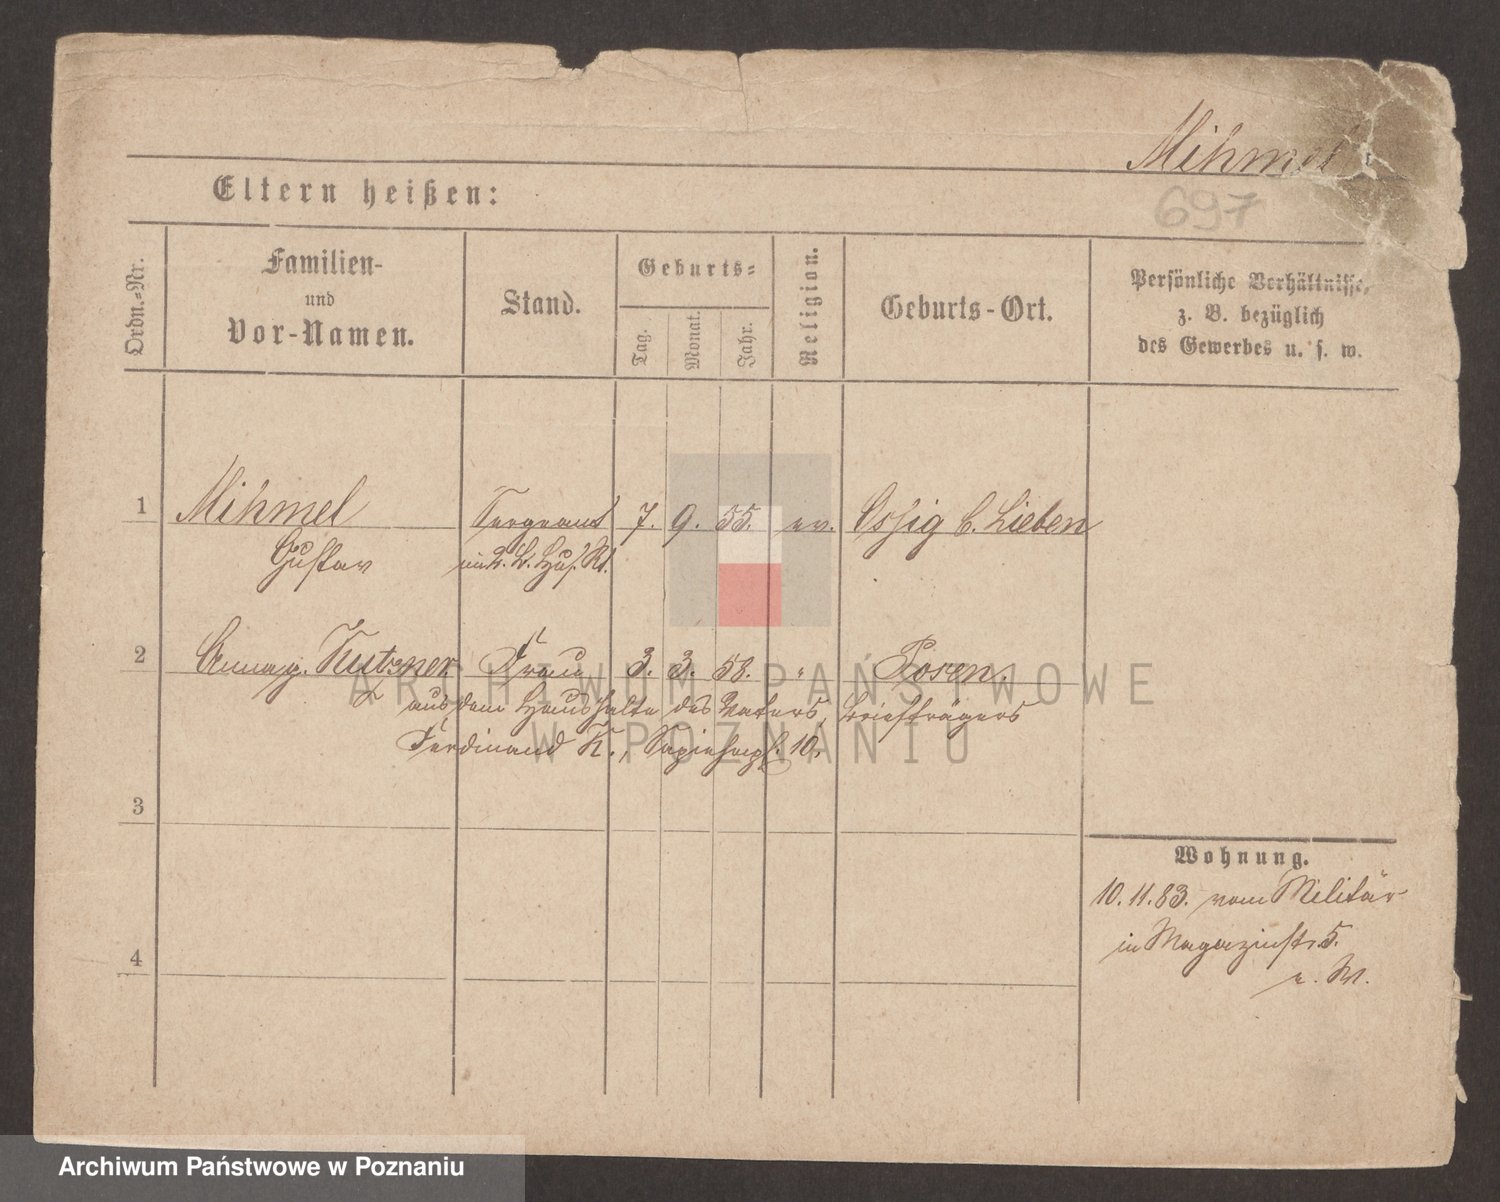 Mihmel
697
Eltern heißen:
Ordn.-Nr.
Familien-
und
Vor-Namen.
Stand.
Geburts-
Tag.
Monat.
Jahr.
Religion.
Geburts-Ort.
Persönliche Verhältnisse,
z. B. bezüglich
des Gewerbes u. s. w.
1 Mihmel Sergeant 7. 9. 55. ev. Ossig b. Lieben
Gustav im 2. L. Hus. Rt.
2 Anna g. Kutzner Frau 3. 3. 58. " Posen.
aus dem Haushalte des Vaters, Briefträgers
Ferdinand K., Sapiehapl. 10,
3
4
Wohnung.
10. 11. 83. vom Militär
in Magazinstr. 5.
n. W.
ARCHIWUM PAŃSTWOWE
W POZNANIU
Archiwum Państwowe w Poznaniu